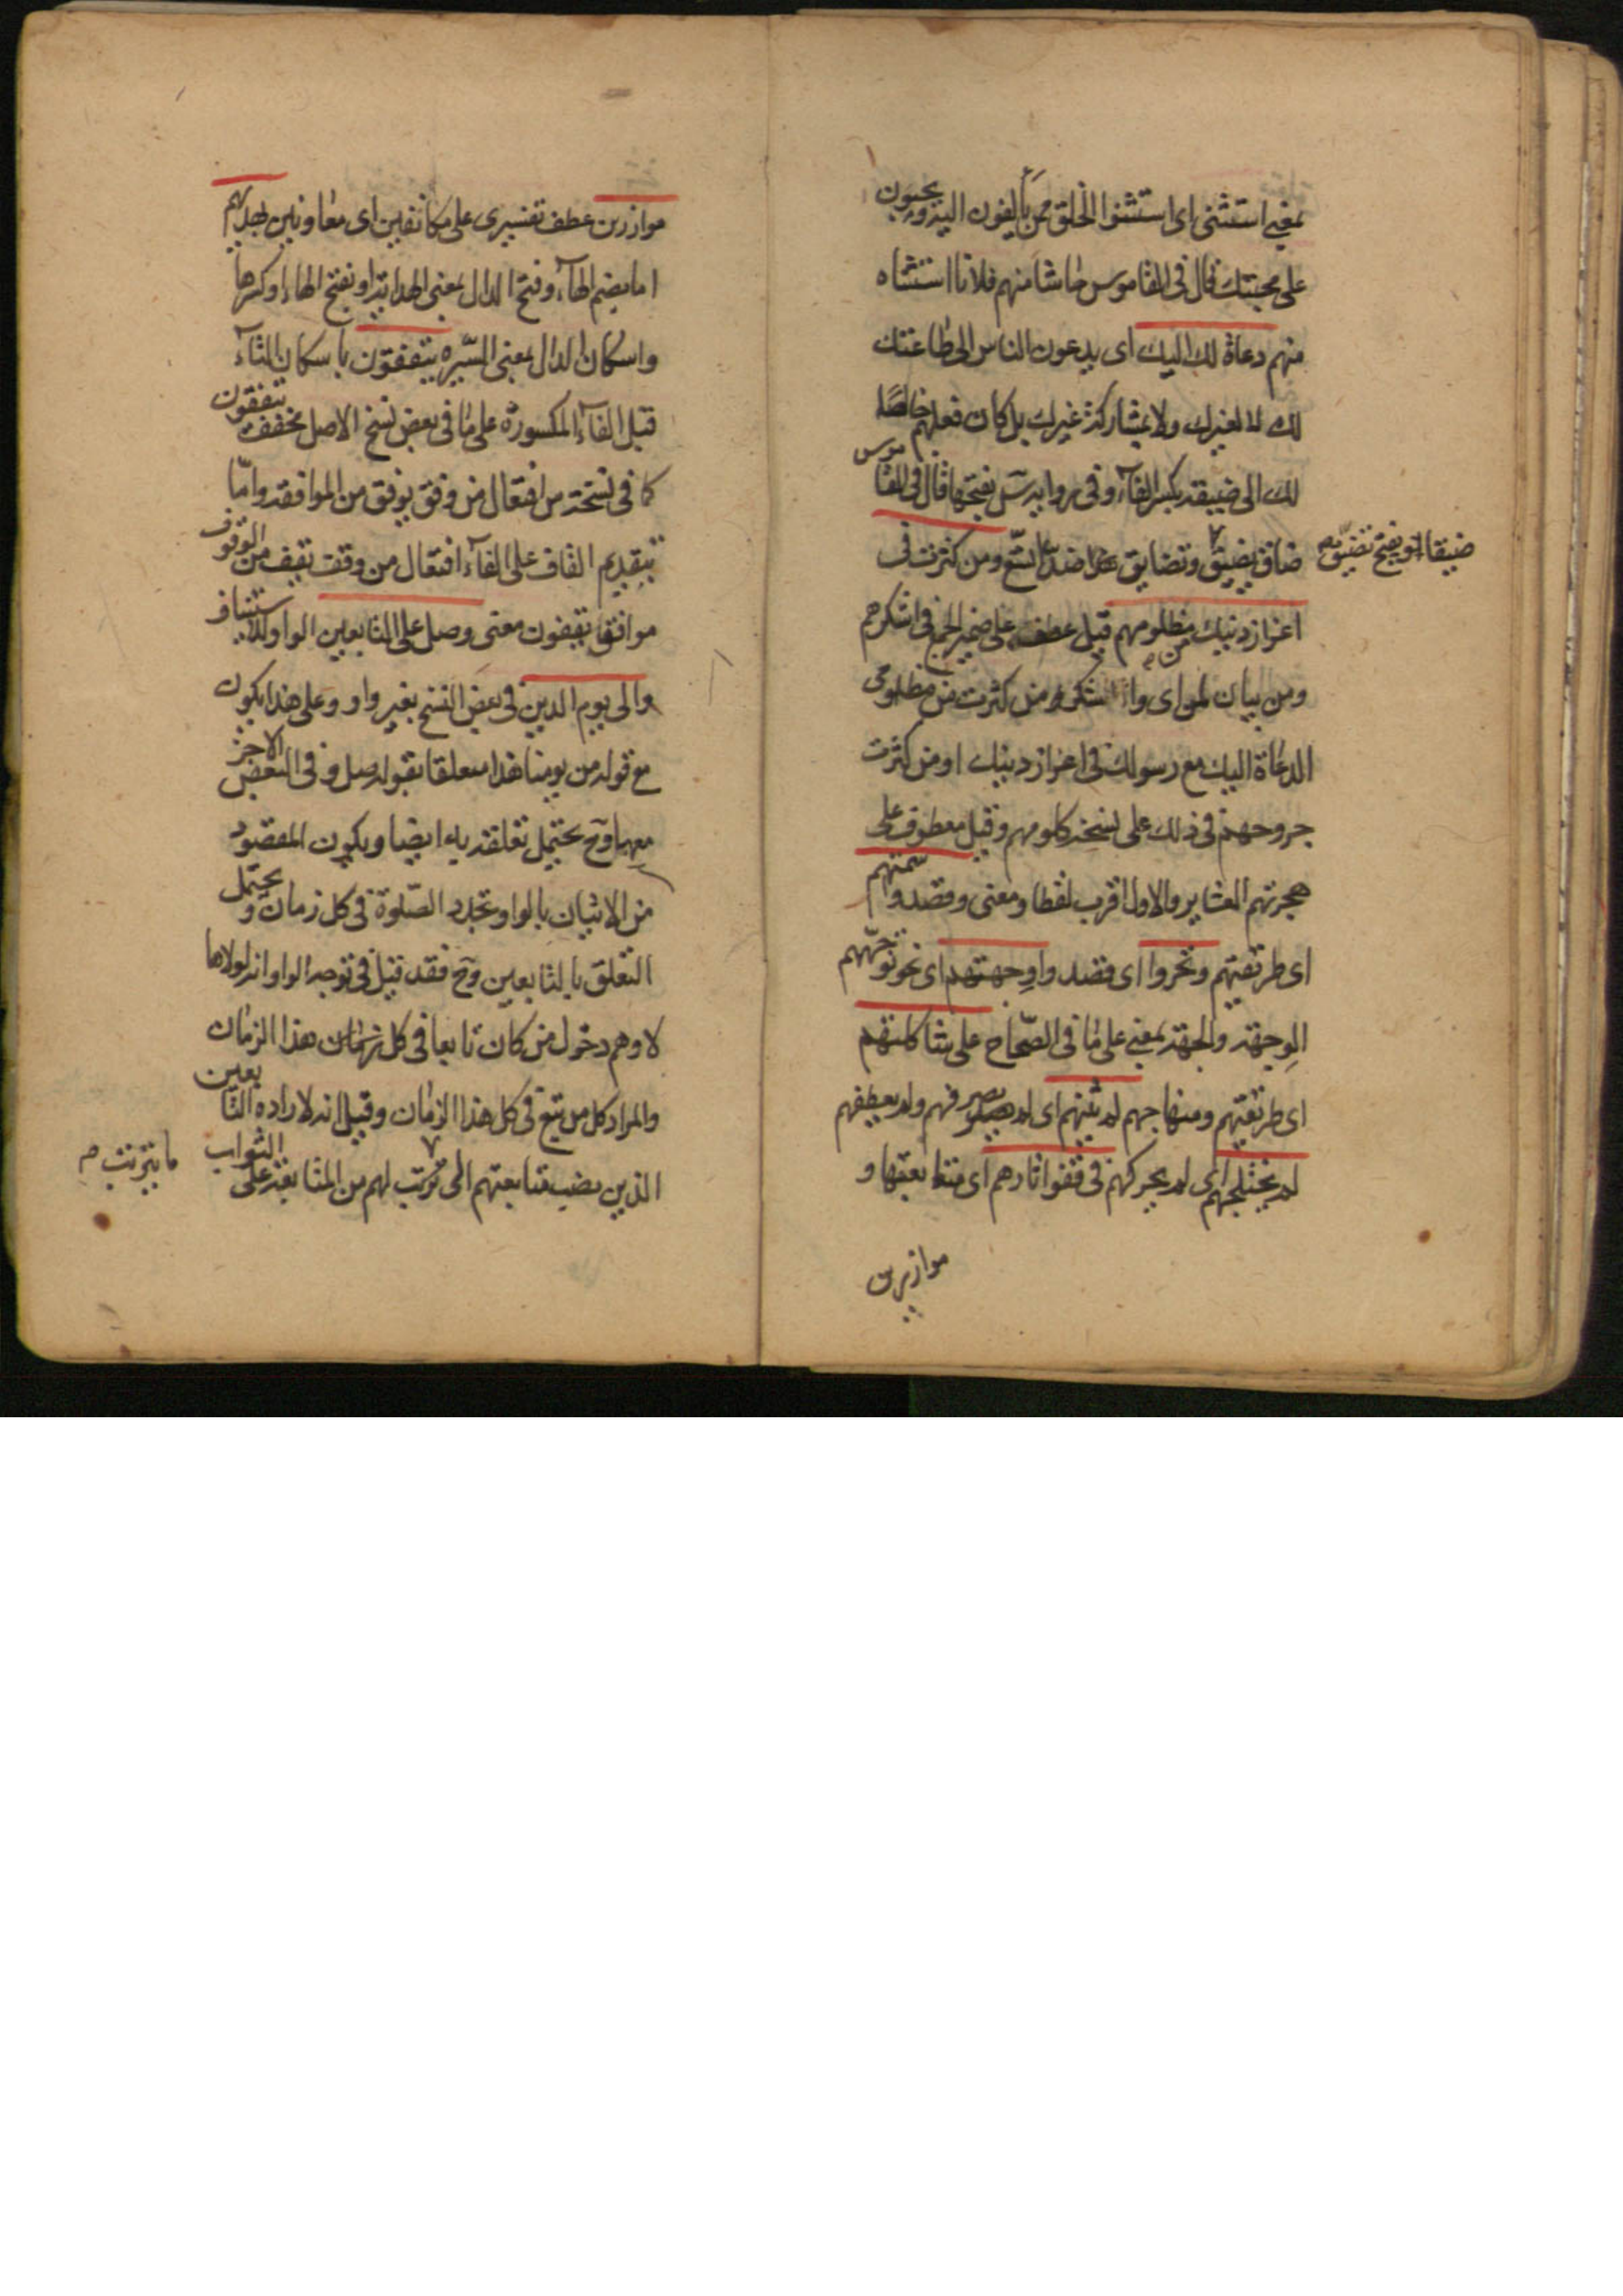 بمعنى استثنى اى استثنوا الخلق ممن يألفون اليه ويحبون
على محبتك قال فى القاموس حاشا منهم فلانا استثناه
منهم دعاة لك اليك اى يدعون الناس الى طاعتك
لك لا لغيرك ولا بمشاركة غيرك بل كان فعلهم خالصا
لك الى ضيقه بكسر الفاء وفى رواية س بفتحها قال فى القاموس
ضاق يضيق وتضايق ضد اتسع ومن كثرت فى
ضيقا او يفتح تضيق صح
اعزاز دينك من مظلومهم قيل عطف على ضمير الجمع فى اشكرهم
ومن بيان لمن اى واشكر من كثرت من مظلومى
الدعاة اليك مع رسولك فى اعزاز دينك او من كثرت
جروحهم فى ذلك على نسخة كلومهم وقيل معطوف على
هجرتهم العشاير والاول اقرب لفظا ومعنى وقصدوا سمتهم
اى طريقتهم وتحروا اى قصدوا وجهتهم اى نحو توجههم
الوجهة والجهة بمعنى على ما فى الصحاح على شاكلتهم
اى طريقتهم ومنهاجهم لم يثنهم اى لم يصرفهم ولم يعطفهم
لم يختلجهم اى لم يحركهم فى قفو اثارهم اى متابعتها و
موازرين
موازرين عطف تفسيرى على مكانفين اى معاونين بهديهم
اما بضم الهاء وفتح الدال بمعنى الهداية او بفتح الهاء او كسرها
واسكان الدال بمعنى السيره يتفقون باسكان التاء
قبل الفاء المكسورة على ما فى بعض نسخ الاصل مخفف يتفقون
كما فى نسخة س افتعال من وفق يوفق من الموافقة واما
بتقديم القاف على الفاء افتعال من وقفت تقيف من الوقوف
موافق يقفون معنى وصل على التابعين الواو للاستيناف
والى يوم الدين فى بعض النسخ بغير واو وعلى هذا يكون
مع قوله من يومنا هذا متعلقا بقوله صل وفى البعض الاخر
معها وح يحتمل تعلقه به ايضا ويكون المقصود
من الاتيان بالواو تجدد الصلوة فى كل زمان ويحتمل
التعلق بالتابعين وح فقد قيل فى توجيه الواو انه لولاها
لاوهم دخول من كان تابعا فى كل زمان هذا الزمان
والمراد كل من تبع فى كل هذا الزمان وقيل انه لارادة التابعين
الذين بمتابعتهم الى ترتب لهم من المتابعة على الثواب
ما يترتب صح